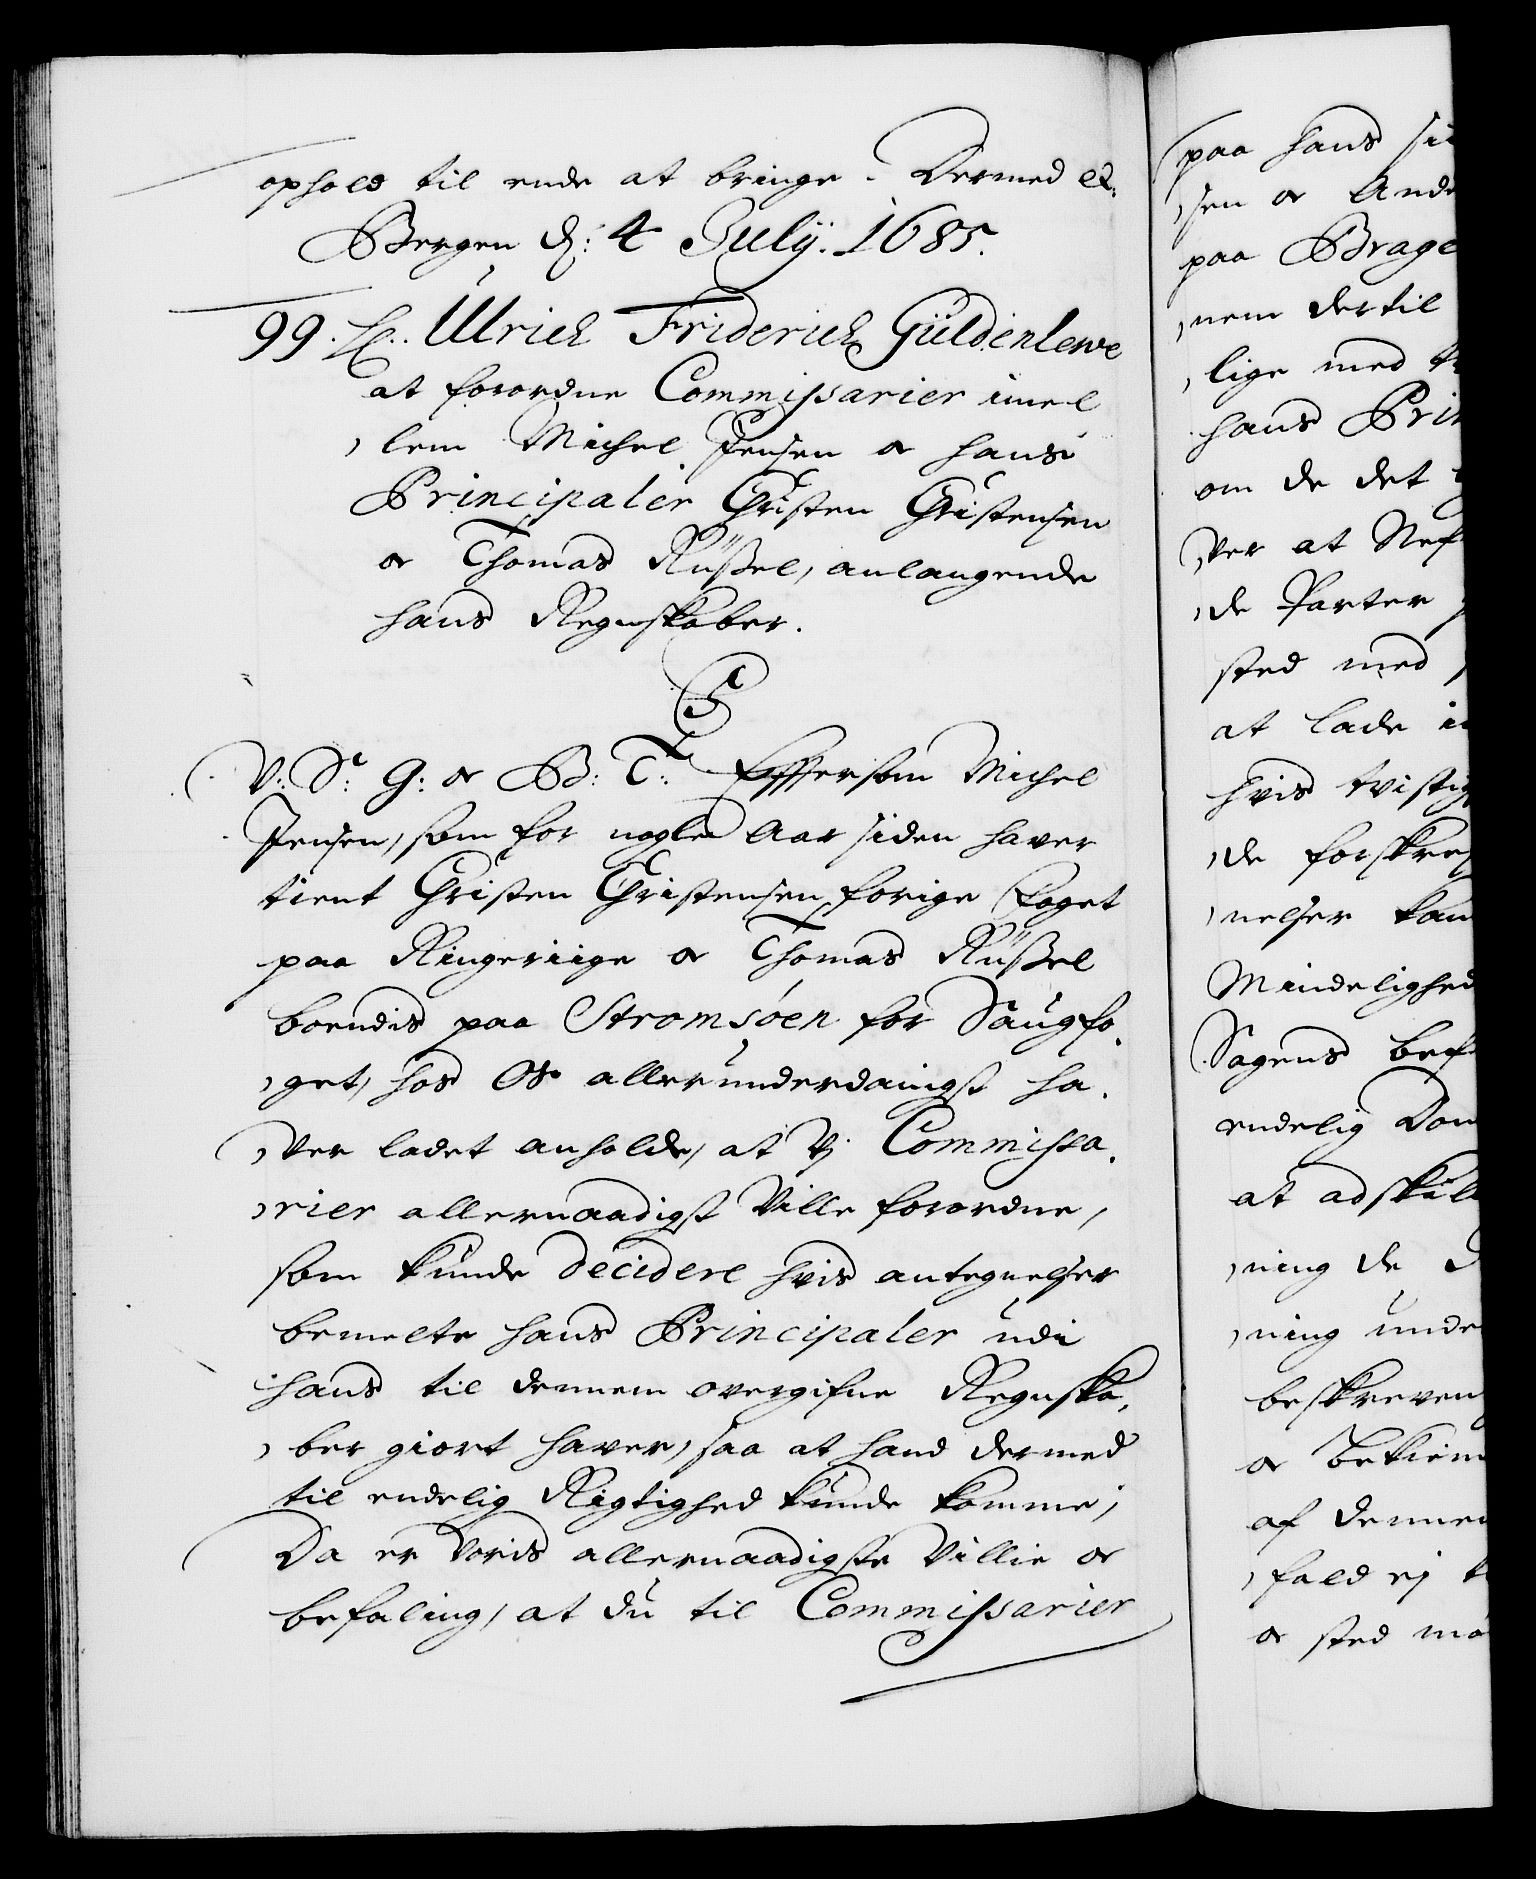 ophold til ende at bringe. Dermed etc.
Bergen d: 4 Julÿ. 1685.
99. Ulrich Friderich Güldenlewe
at forordne Commissarier imel
lem Michel Jensen oc hans
Principaler Christen Christensen
oc Thomas Rüssel, anlangende
hans Regnskaber.
C5
V: Sr: G: oc B: T: Effterson Michel
Jensen, som for nogle Aar siden haver
tient Christen Christensen, forige Foget
paa Ringeriige oc Thomas Rüssel
boendis paa Stromsöen for Saugfo
get, hos Os allerunderdanigst ha
ver ladet anholde, at Vj Commissa
rier allernaadigst Ville forordne,
som kunde decidere hvis antegnelser
bemelte hans Principaler udi
hans til dennem overgifne Regnska
ber giort haver, saa at hand dermed
til endelig Rigtighed kunde komme;
Da er Voris allernaadigste Villie oc
befaling, at du til Commissarier
paa hans
sen oc And
paa Brage
nem dertil
lige med
hans Prin
om de det
ver at
de Parter
sted med
at lade
hvis tvistig
de forskre
nelser kan
Mindelighed
Sagens bef
endelig Dom
at adskille
ning de
ning unde
beskreven
oc bekiem
af dennem
fald ej
oc sted